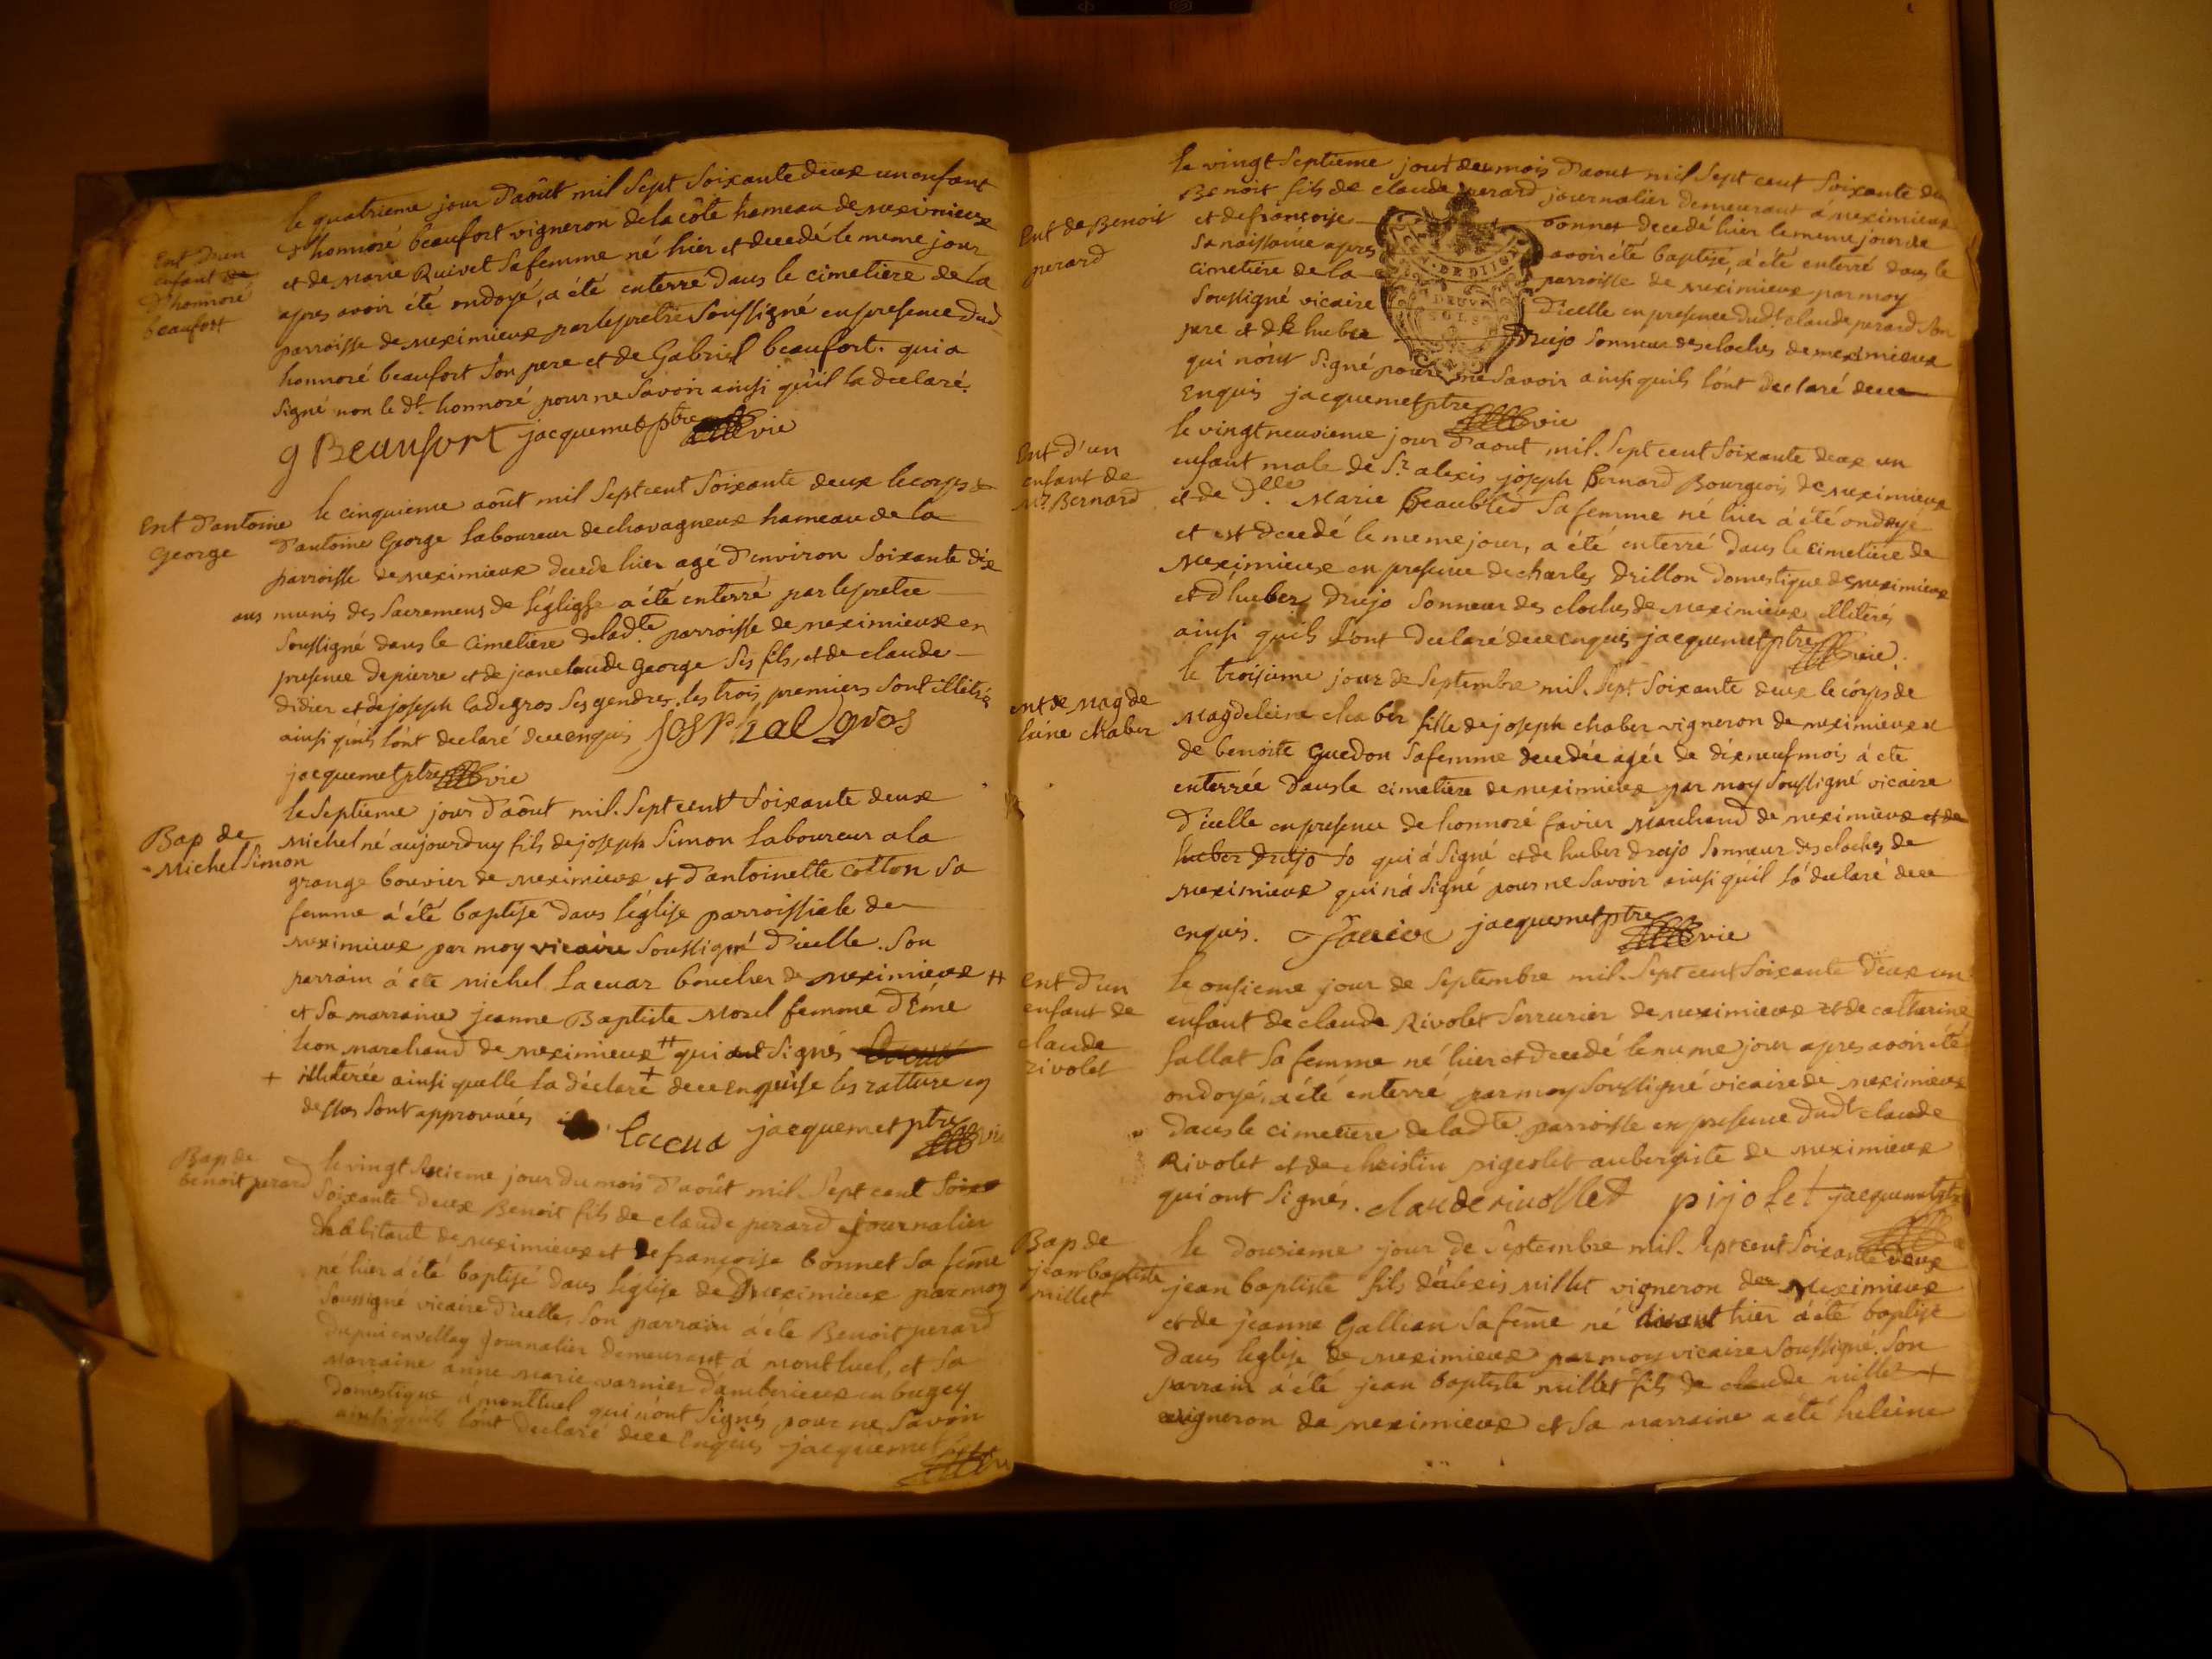 Ent d'un
enfant de
d'honnoré
beaufort
le quatrieme jour d'aôut mil sept soixante deux un enfant
d'honnoré beaufort vigneron de la côte hameau de meximieux
et de marie Ruivet sa femme né hier et decedé le meme jour
apres avoir été ondoyé, a été enterré dans le cimetiere de la
parroisse de meximieux par le pretre soussigné en presence dud.
honnoré beaufort son pere et de Gabriel beaufort. qui a
signé non le dt. honnoré pour ne savoir ainsi qu'il la declaré.
g Beaufort jacquemet ptre vic
Ent d'antoine
George
le cinquieme aôut mil sept cent soixante deux le corps
d'antoine George laboureur de chavagneux hameau de la
parroisse de meximieux decede hier agé d'environ soixante dix
ans munis des sacremens de l'église a été enterré par le pretre
soussigné dans le cimetiere de ladte. parroisse de meximieux en
presence de pierre et de jean claude George ses fils, et de claude
didier et de joseph ladegros ses gendres. les trois premiers sont illitérés
ainsi quils lónt declaré de ce enquis
jacquemet ptre vic
Bap de
Michel Simon
le septieme jour d'aôut mil. sept cent soixante deux
michel né aujourd'uy fils de joseph Simon laboureur a la
grange bouvier de meximieux et d'antoinette cotton sa
femme a été baptisé dans l'église parroissiale de
meximieux par moy vicaire soussigné d'icelle. son
parrain á eté michel Lacuar boucher de meximieux ++
et sa marraine jeanne Baptiste morel femme d'émé
leon marchand de meximieux ++ qui ont signés
+ illiterée ainsi quelle la déclaré + de ce enquise les ratture cy
dessus sont approuvées
lacua jacquemet ptre vic
Bap de
benoit perard
le vingt sixieme jour du mois d'aôut mil. sept cent soixe
soixante deux Benoit fils de claude perard journalier
habitant de meximieux et de françoise bonnet sa feme
né hier á été baptisé dans l'église de meximieux par moy
soussigné vicaire d'icelle, son parrain á été Benoit perard
du pui en vellay journalier demeurant á montluel, et sa
marraine anne marie varnier d'amberieux en bugey
domestique á montluel qui n'ont signés pour ne savoir
ainsi quils lónt declaré de ce enquis jacquemet
Ent de Benoit
perard
le vingt septieme jour du mois d'aout mil sept cent soixante deux
Benoit fils de claude perard journalier demeurant á meximieux
et de françoise bonnet decedé hier le meme jour de
sa naissance apres avoir été baptisé, á été enterré dans le
cimetiere de la parroisse de meximieux par moy
soussigné vicaire d'icelle en presence dudt. claude perard son
pere et de huber drujo sonneur des cloches de meximieux
qui nónt signé pour ne savoir ainsi quils lónt declaré de ce
enquis jacquemet ptre vic
Ent d'un
enfant de
Mr. Bernard
le vingt neuvieme jour d'aout mil. sept cent soixante deux un
enfant male de Sr. alexis joseph Bernard Bourgeois de meximieux
et de Dlle. Marie Beaubled sa femme né hier á été ondoyé
et est decedé le meme jour, a été enterré dans le cimetiere de
meximieux en presence de charles drillon domestique de meximieux
et d'huber drujo sonneur des cloches de meximieux illiterés
ainsi quils l'ont declaré de ce enquis jacquemet ptre vic.
ent de magde
leine chaber
le troisieme jour de septembre mil. sept soixante deux le córps de
magdeleine chaber fille de joseph chaber vigneron de meximieux et
de benoite guedon sa femme decedée agée de dix neuf mois á eté
enterrée dans le cimetiere de meximieux par moy soussigné vicaire
d'icelle en presence de honnoré favier marchand de meximieux et de
huber drujo so qui á signé et de huber drujo sonneur des cloches de
meximieux qui ná signé pour ne savoir ainsi qu'il lá declaré de ce
enquis. favier jacquemet ptre vic
ent d'un
enfant de
claude
rivolet
le onsieme jour de septembre mil. sept cent soixante deux un
enfant de claude Rivolet serrurier de meximieux et de catherine
fallat sa femme né hier et decedé le meme jour apres avoir été
ondoyé, a été enterré par moy soussigné vicaire de meximieux
dans le cimetiere de ladte. parroisse en presence dudt claude
Rivolet et de christin pigeolet aubergiste de meximieux
qui ont signés. claude rivollet pijolet jacquemet ptre
Bap de
jean baptiste
millet
le dousieme jour de septembre mil. sept cent soixante deux
jean baptiste fils d'alexis millet vigneron de meximieux
et de jeanne Gallian sa feme né avant hier á été baptisé
dans l'eglise de meximieux par moy vicaire soussigné. son
parrain á été jean baptiste millet fils de claude millet +
vigneron de meximieux et sa marraine a été heleine